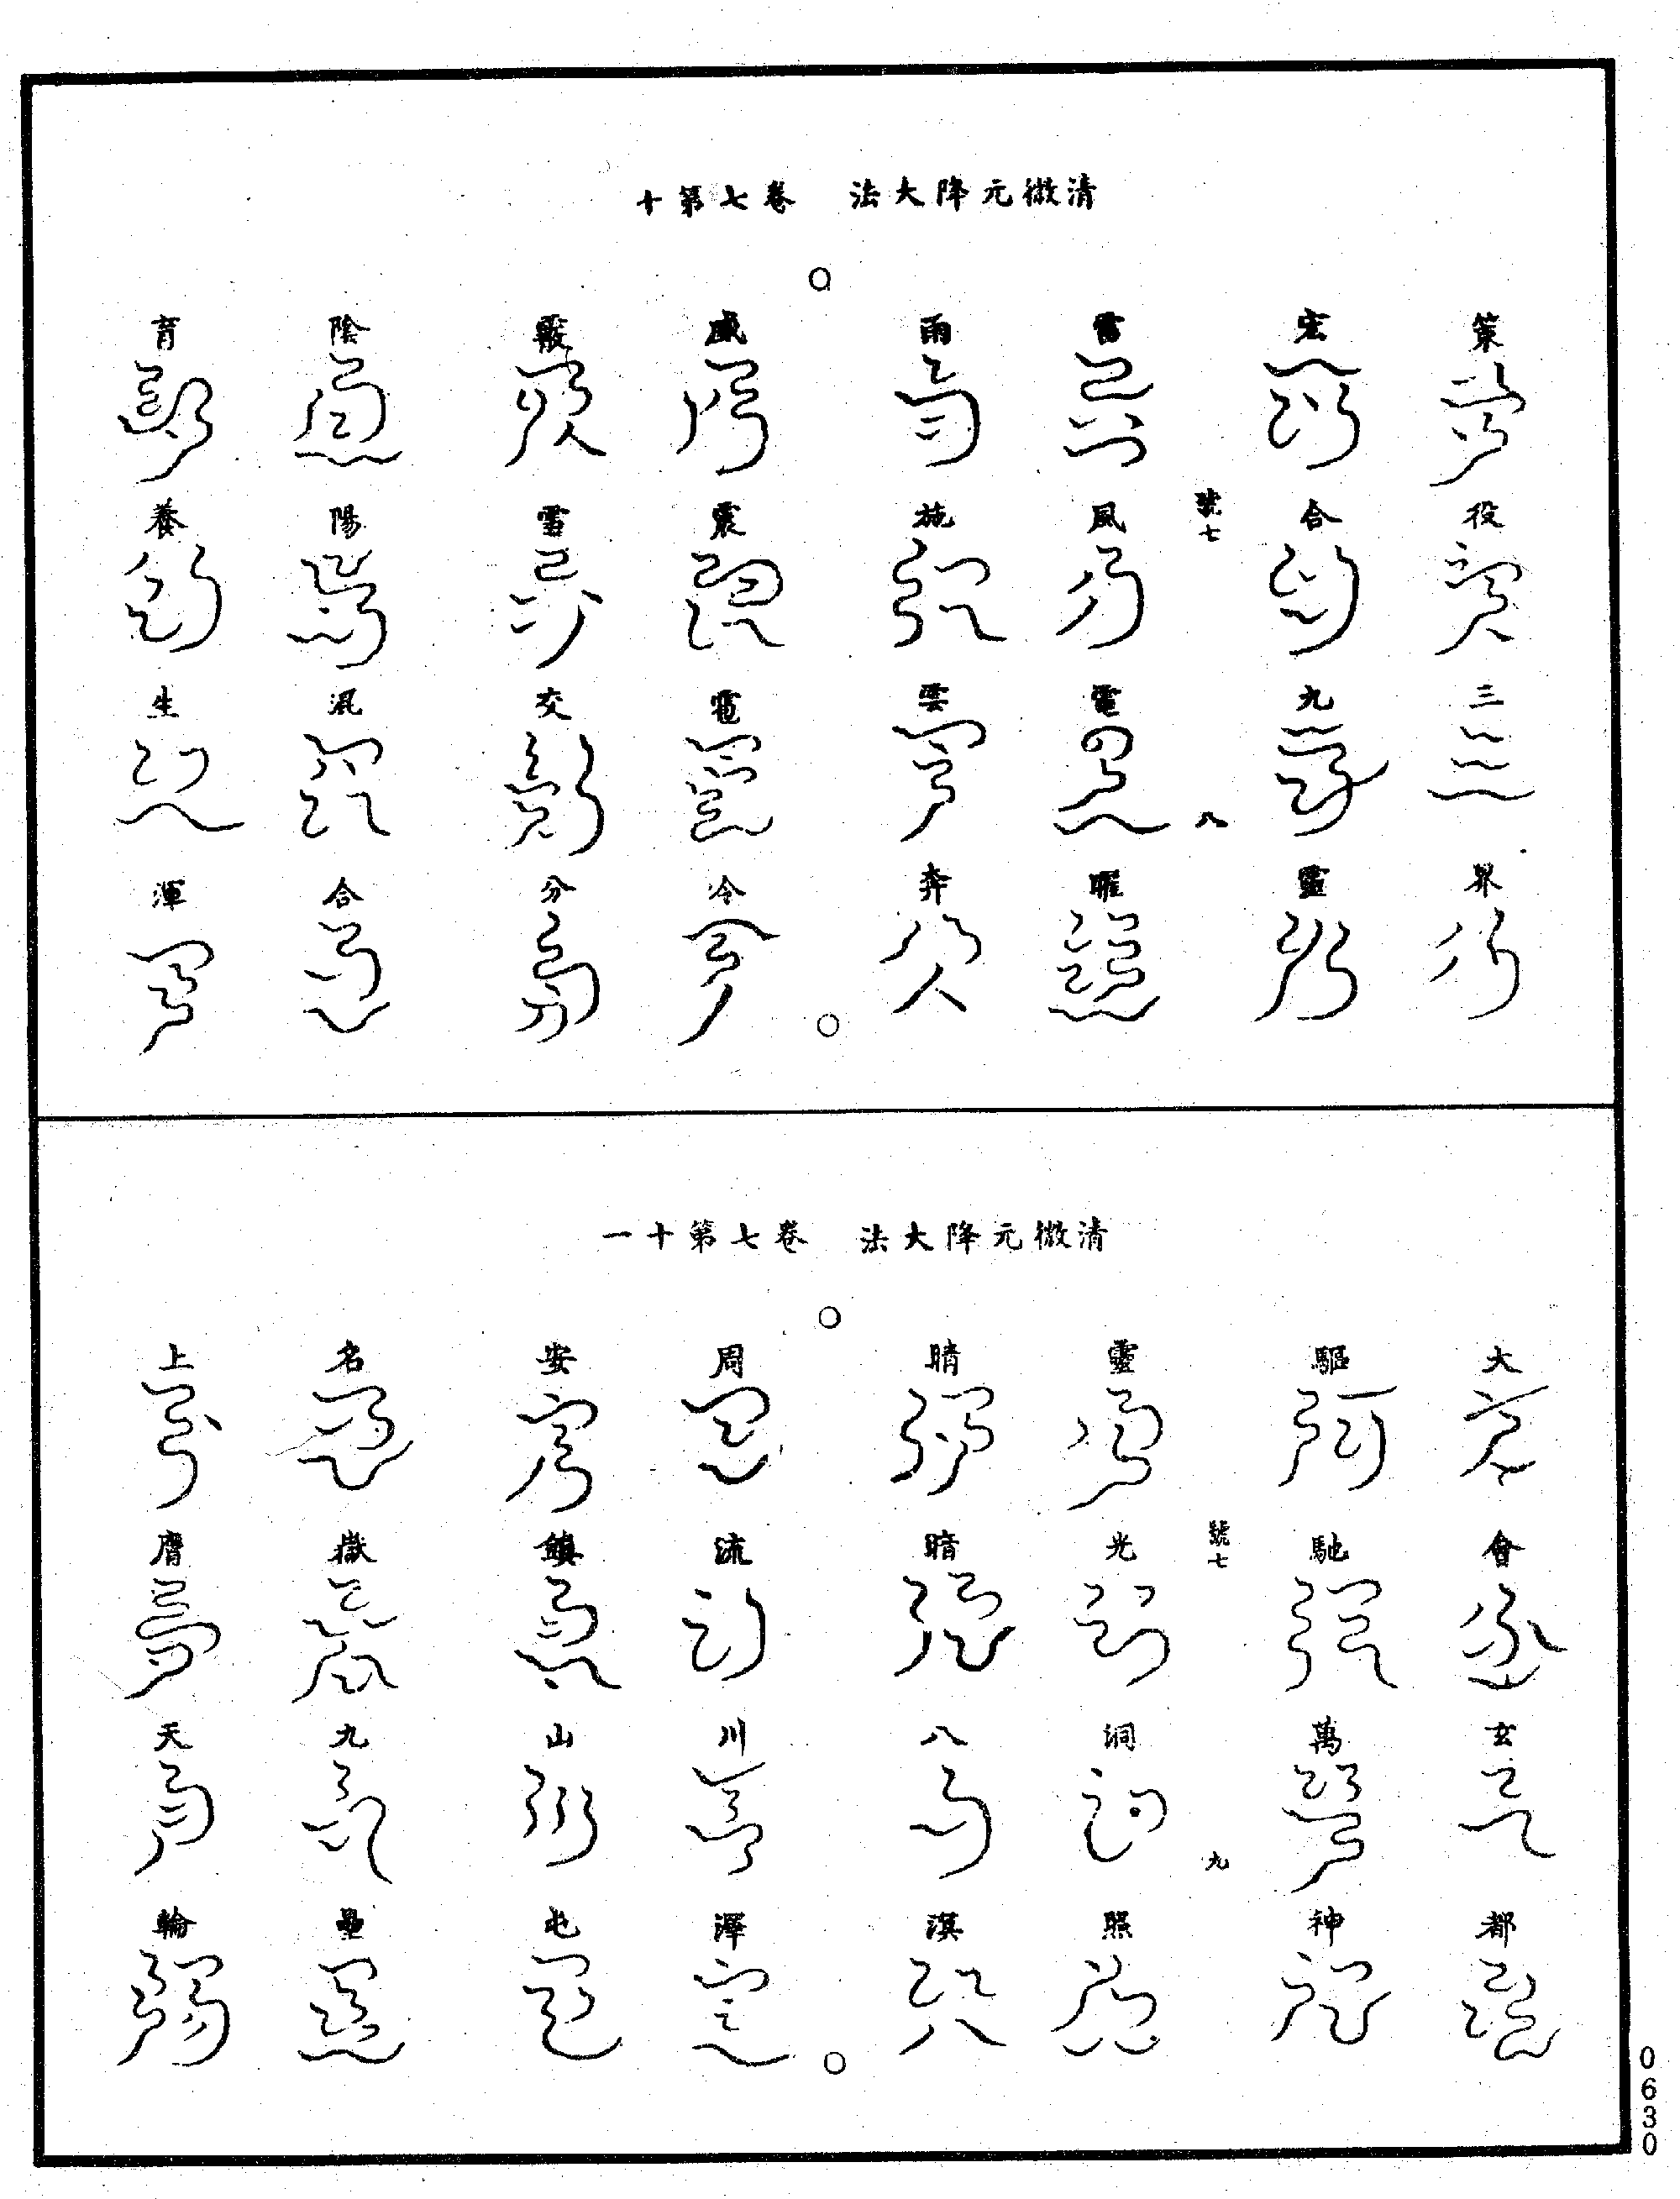 清微元降大法　卷七第十
策役三界
宏合九靈
號七　八
雷風電曜
雨施雲奔
威震雹冷
霰雪交分
陰陽混合
育養生渾
清微元降大法　卷七第十一
大會玄都
驅馳萬神
號七　九
靈光洞照
晴暗八溟
周流川澤
安鎮山屯
名嶽九壘
上膺天輪
0630